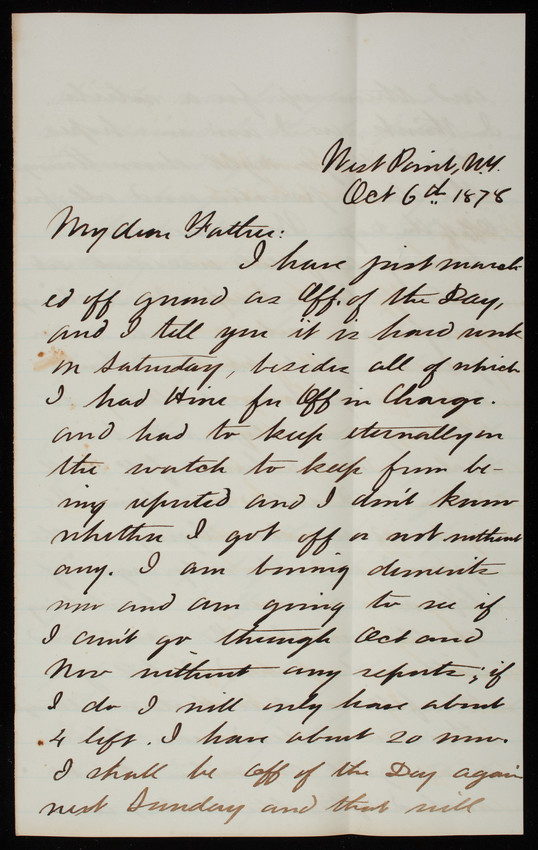 West Point, N.Y.
Oct 6th 1878
My dear Father:
I have just march-
ed off guard as Off. of the Day,
and I tell you it is hard work
on Saturday, besides all of which
I had Hine for Off in Charge.
and had to keep eternally on
the watch to keep from be-
ing reported and I don't know
whether I got off or not without
any. I am boning demerits
now and am going to see if
I can't go through Oct and
Nov without any reports; if
I do I will only have about
4 left. I have about 20 now.
I shall be Off of the Day again
next Sunday and that will